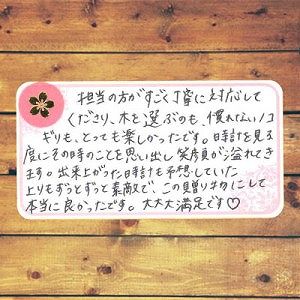 担当の方がすごく丁寧に対応して
くださり、木を選ぶのも、慣れないノコ
ギリも、とっても楽しかったです。時計を見る
度にその時のことを思い出し笑顔が溢れてき
ます。出来上がった時計も予想していた
上りもずっとずっと素敵で、この贈り物にして
本当に良かったです。大大大満足です♡